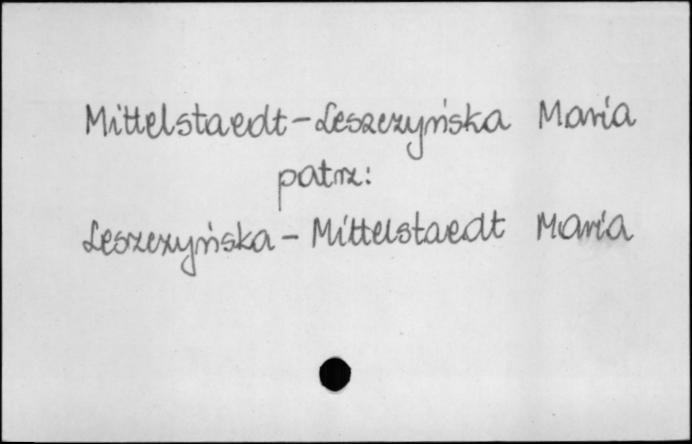 Mittelstaedt-Leszczyńska Maria
patrz:
Leszczyńska - Mittelstaedt Maria